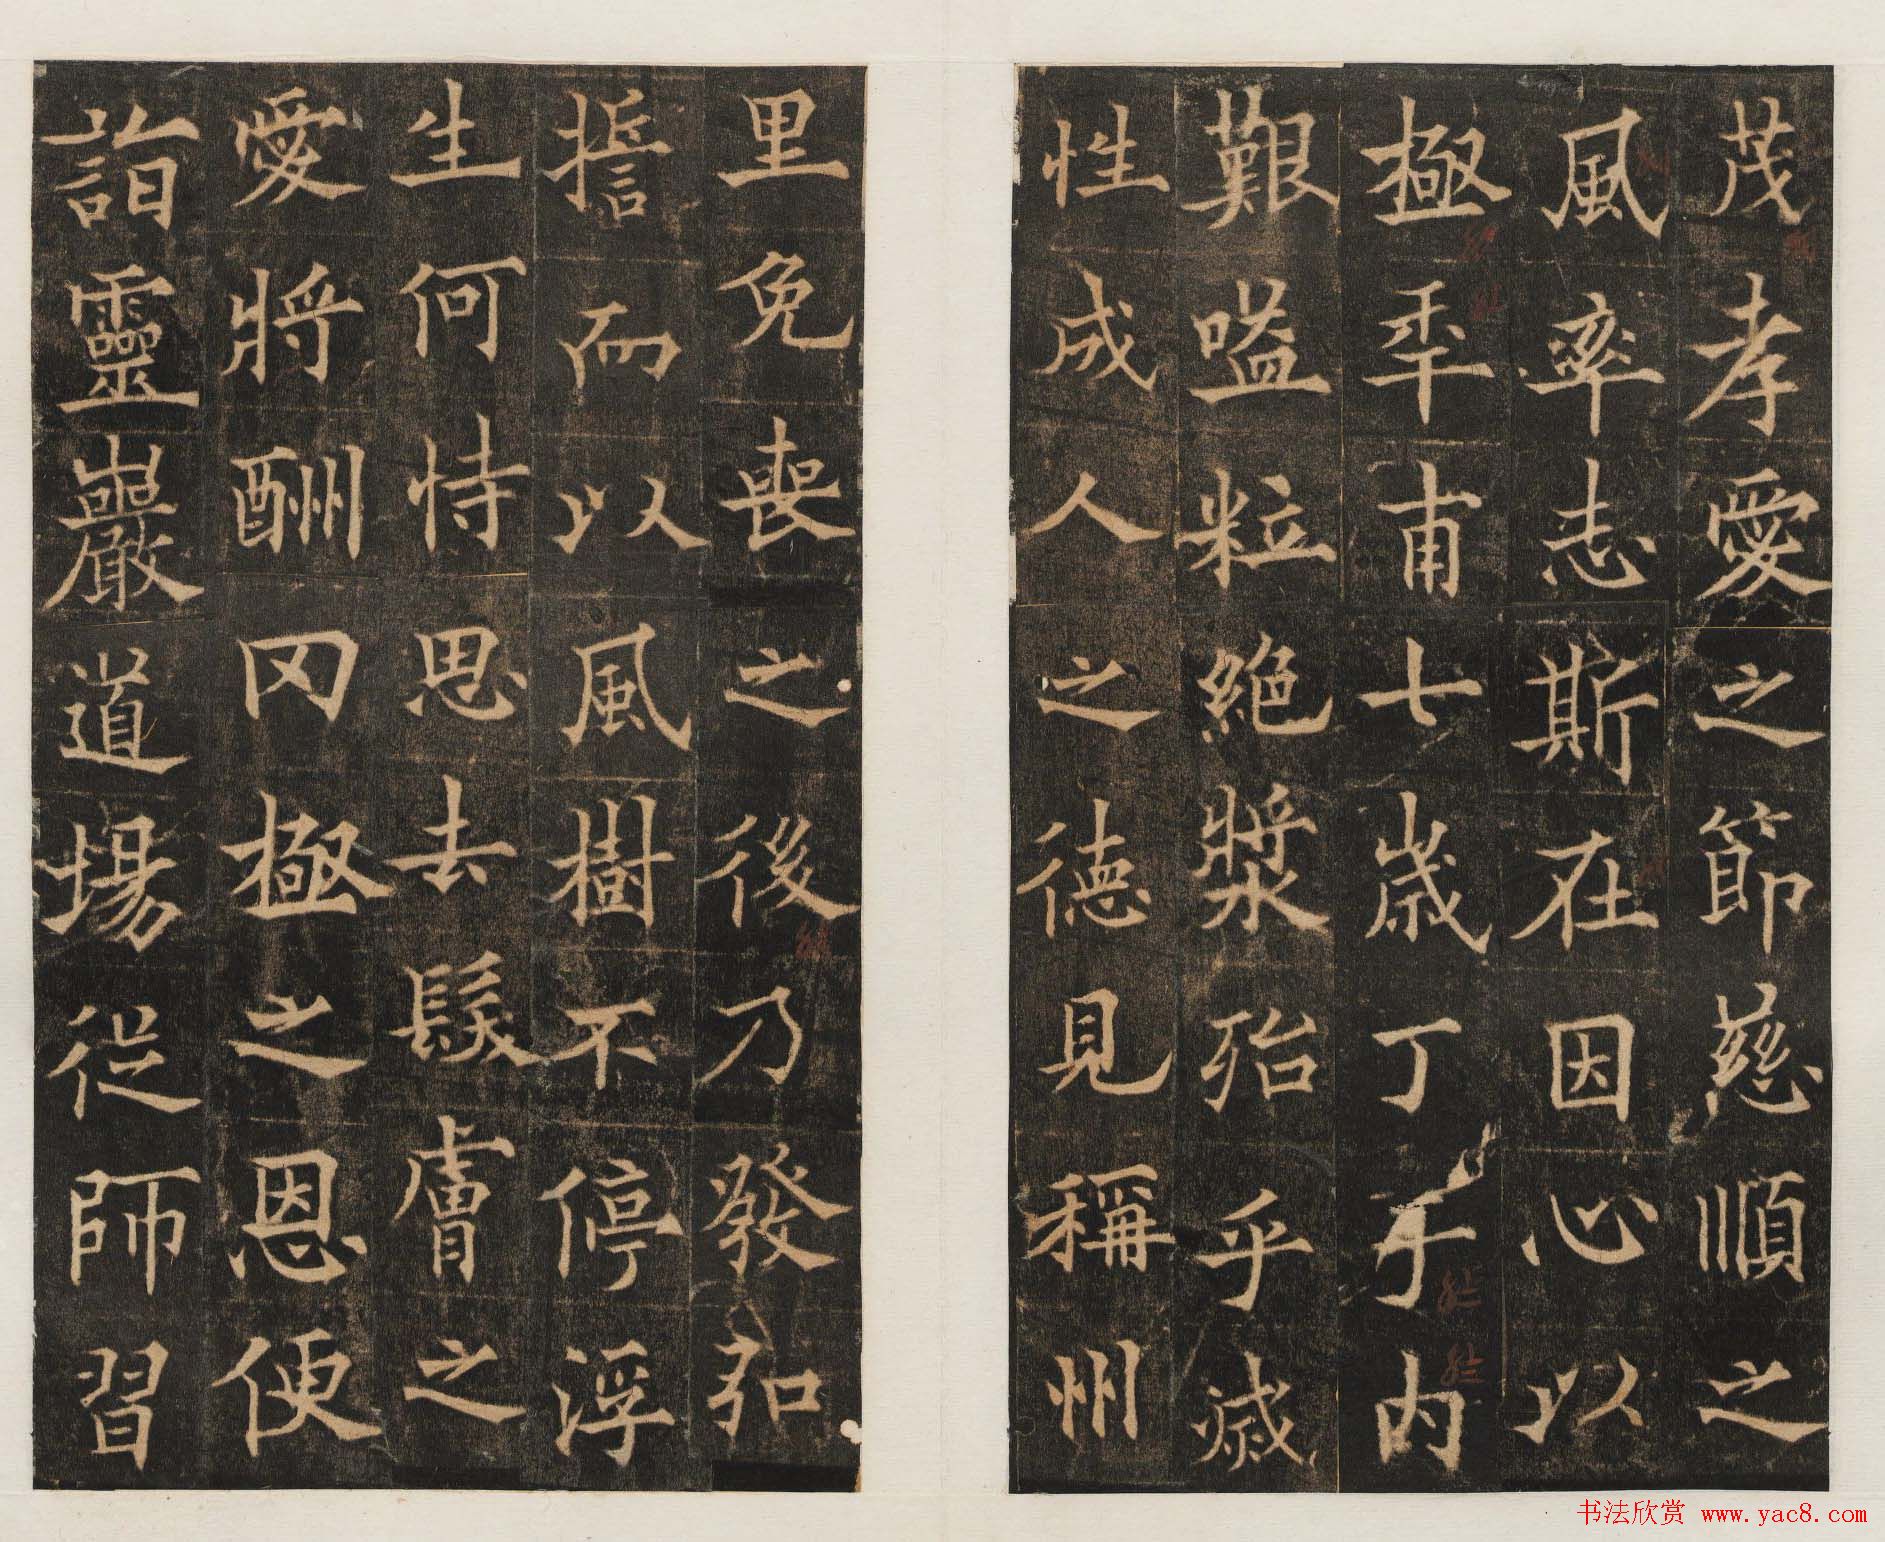 茂孝愛之節慈順之
風率志斯在因心以
極年甫七歲丁于内
艱嗌粒絕漿殆乎滅
性成人之德見稱州
里免喪之後乃發弘
誓而以風樹不停浮
生何恃思去髮膚之
愛將酬罔極之恩便
詣靈巖道場從師習
书法欣赏 www.yac8.com